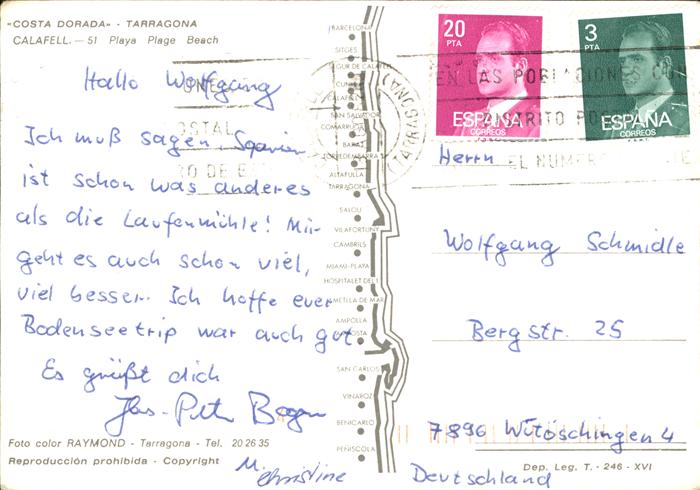 "COSTA DORADA" - TARRAGONA
CALAFELL. - 51 Playa Plage Beach
Hallo Wolfgang
Ich muß sagen, Spanien
ist schon was anderes
als die Laufenmühle! Mir
geht es auch schon viel,
viel besser. Ich hoffe euer
Bodenseetrip war auch gut
Es grüßt dich
Foto color RAYMOND - Tarragona - Tel. 20 26 35
Reproducción prohibida - Copyright
M. Christine
BARCELONA
SITGES
SEGUR DE CALAFELL
CALAFELL
SAN SALVADOR
COMARRUGA
BARA
TORREDEMBARRA
ALTAFULLA
TARRAGONA
SALOU
VILAFORTUNY
CAMBRILS
MIAMI-PLAYA
HOSPITALET DEL I.
AMETLLA DE MAR
AMPOLLA
SAN CARLOS
VINAROZ
BENICARLO
PEÑISCOLA
20
PTA
ESPAÑA
CORREOS
3
PTA
ESPAÑA
CORREOS
EN LAS POBLACIONES CON
EL NUMERO
TARRAGONA
Herrn
Wolfgang Schmidle
Bergstr. 25
7896 Wutöschingen 4
Deutschland
Dep. Leg. T. - 246 - XVI